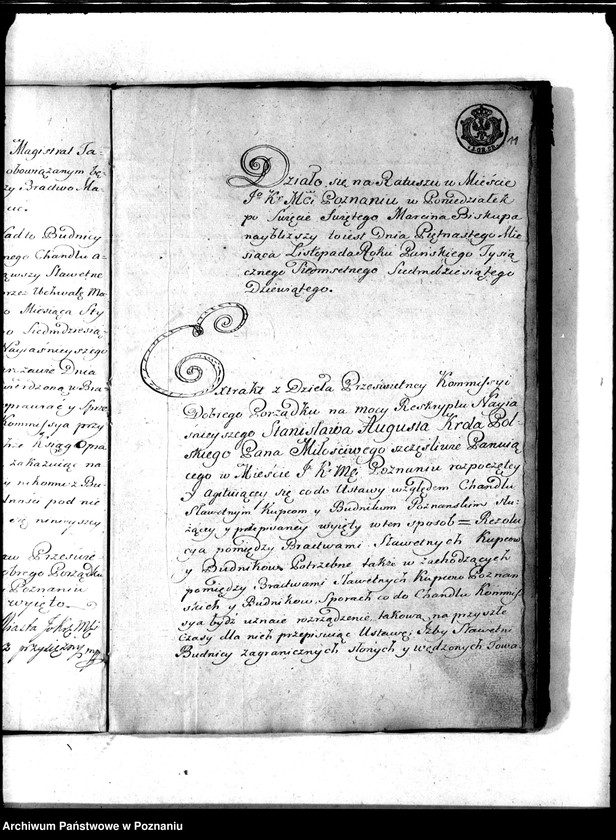 Magistrat Ta-
obowiązanym
Bractwo Ma
Budnicy
nego Chandlu a-
Sławetne
przez Uchwałę Ma
Miesiąca Sty
Siedmdziesią
Nayiaśnieyszego
Dnia
Kommissya przy
Ksiąg Opra
zakazuiąc na
pod nie
Przeswie
obrego Porządku
Poznaniu
wyięto
Miasta JoKrMści
11
Działo się na Ratuszu w Mieście
Jo Kr Mci Poznaniu w Poniedziałek
po Święcie Swiętego Marcina Biskupa
naybliższy to iest Dnia Piętnastego Mie
siąca Listopada Roku Pańskiego Tysią
cznego Siedmsetnego Siedmdziesiątego
Dziewiątego.
Extrakt z Dzieła Przeswietney Kommissyi
Dobrego Porządku na mocy Reskryptu Nayia
snieyszego Stanisława Augusta Krola Pol-
skiego Pana Miłosciwego szczęśliwie Panuią
cego w Mieście J K Mci Poznaniu rozpoczętey
y agituiącey się co do Ustawy względem Chandlu
Sławetnym Kupcom y Budnikom Poznanskim słu-
żącey y przepisaney wyięty w ten sposob = Rezolu
cya pomiędzy Bractwami Sławetnych Kupcow
y Budnikow Potrzebne także w zachodzących
pomiędzy Bractwami Sławetnych Kupcow Poznan
skich y Budnikow Sporach co do Chandlu Kommis
sya bydź uznaie rozrządzenie, takową na przyszłe
czasy dla nich przepisuiąc Ustawę, Iżby Sławetni
Budnicy zagranicznych słonych y wędzonych Towa-
Archiwum Państwowe w Poznaniu